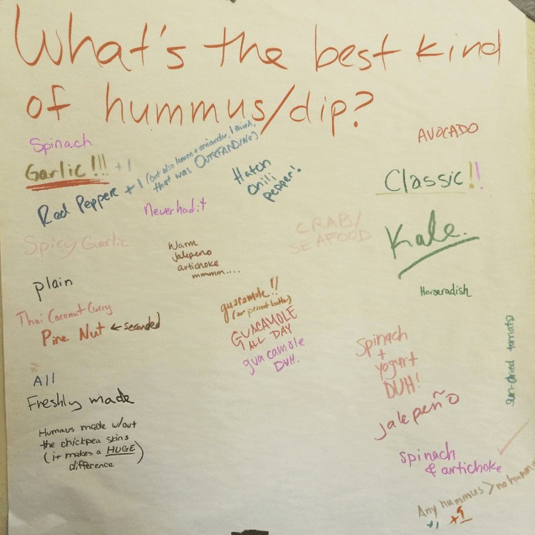 What's the best kind
of hummus/dip?
Spinach
Garlic!!! +1
Red Pepper +1 (but also lemon + coriander, I think,
that was OUTSTANDING)
Never had it
Hatch
chili
pepper!
AVOCADO
Classic!!
Spicy Garlic
Warm
jalapeno
artichoke
mmmm....
CRAB/
SEAFOOD
Kale.
plain
Horseradish
Thai Coconut Curry
Pine Nut ← seconded
guacamole!!
(or peanut butter)
GUACAMOLE
ALL DAY
guacamole
DUH.
Spinach
+
yogurt
DUH!
sun-dried tomato
All
Freshly made
jalepeño
Hummus made w/out
the chickpea skins
(it makes a HUGE)
difference
spinach
& artichoke
Any hummus > no hummus
+1 +1